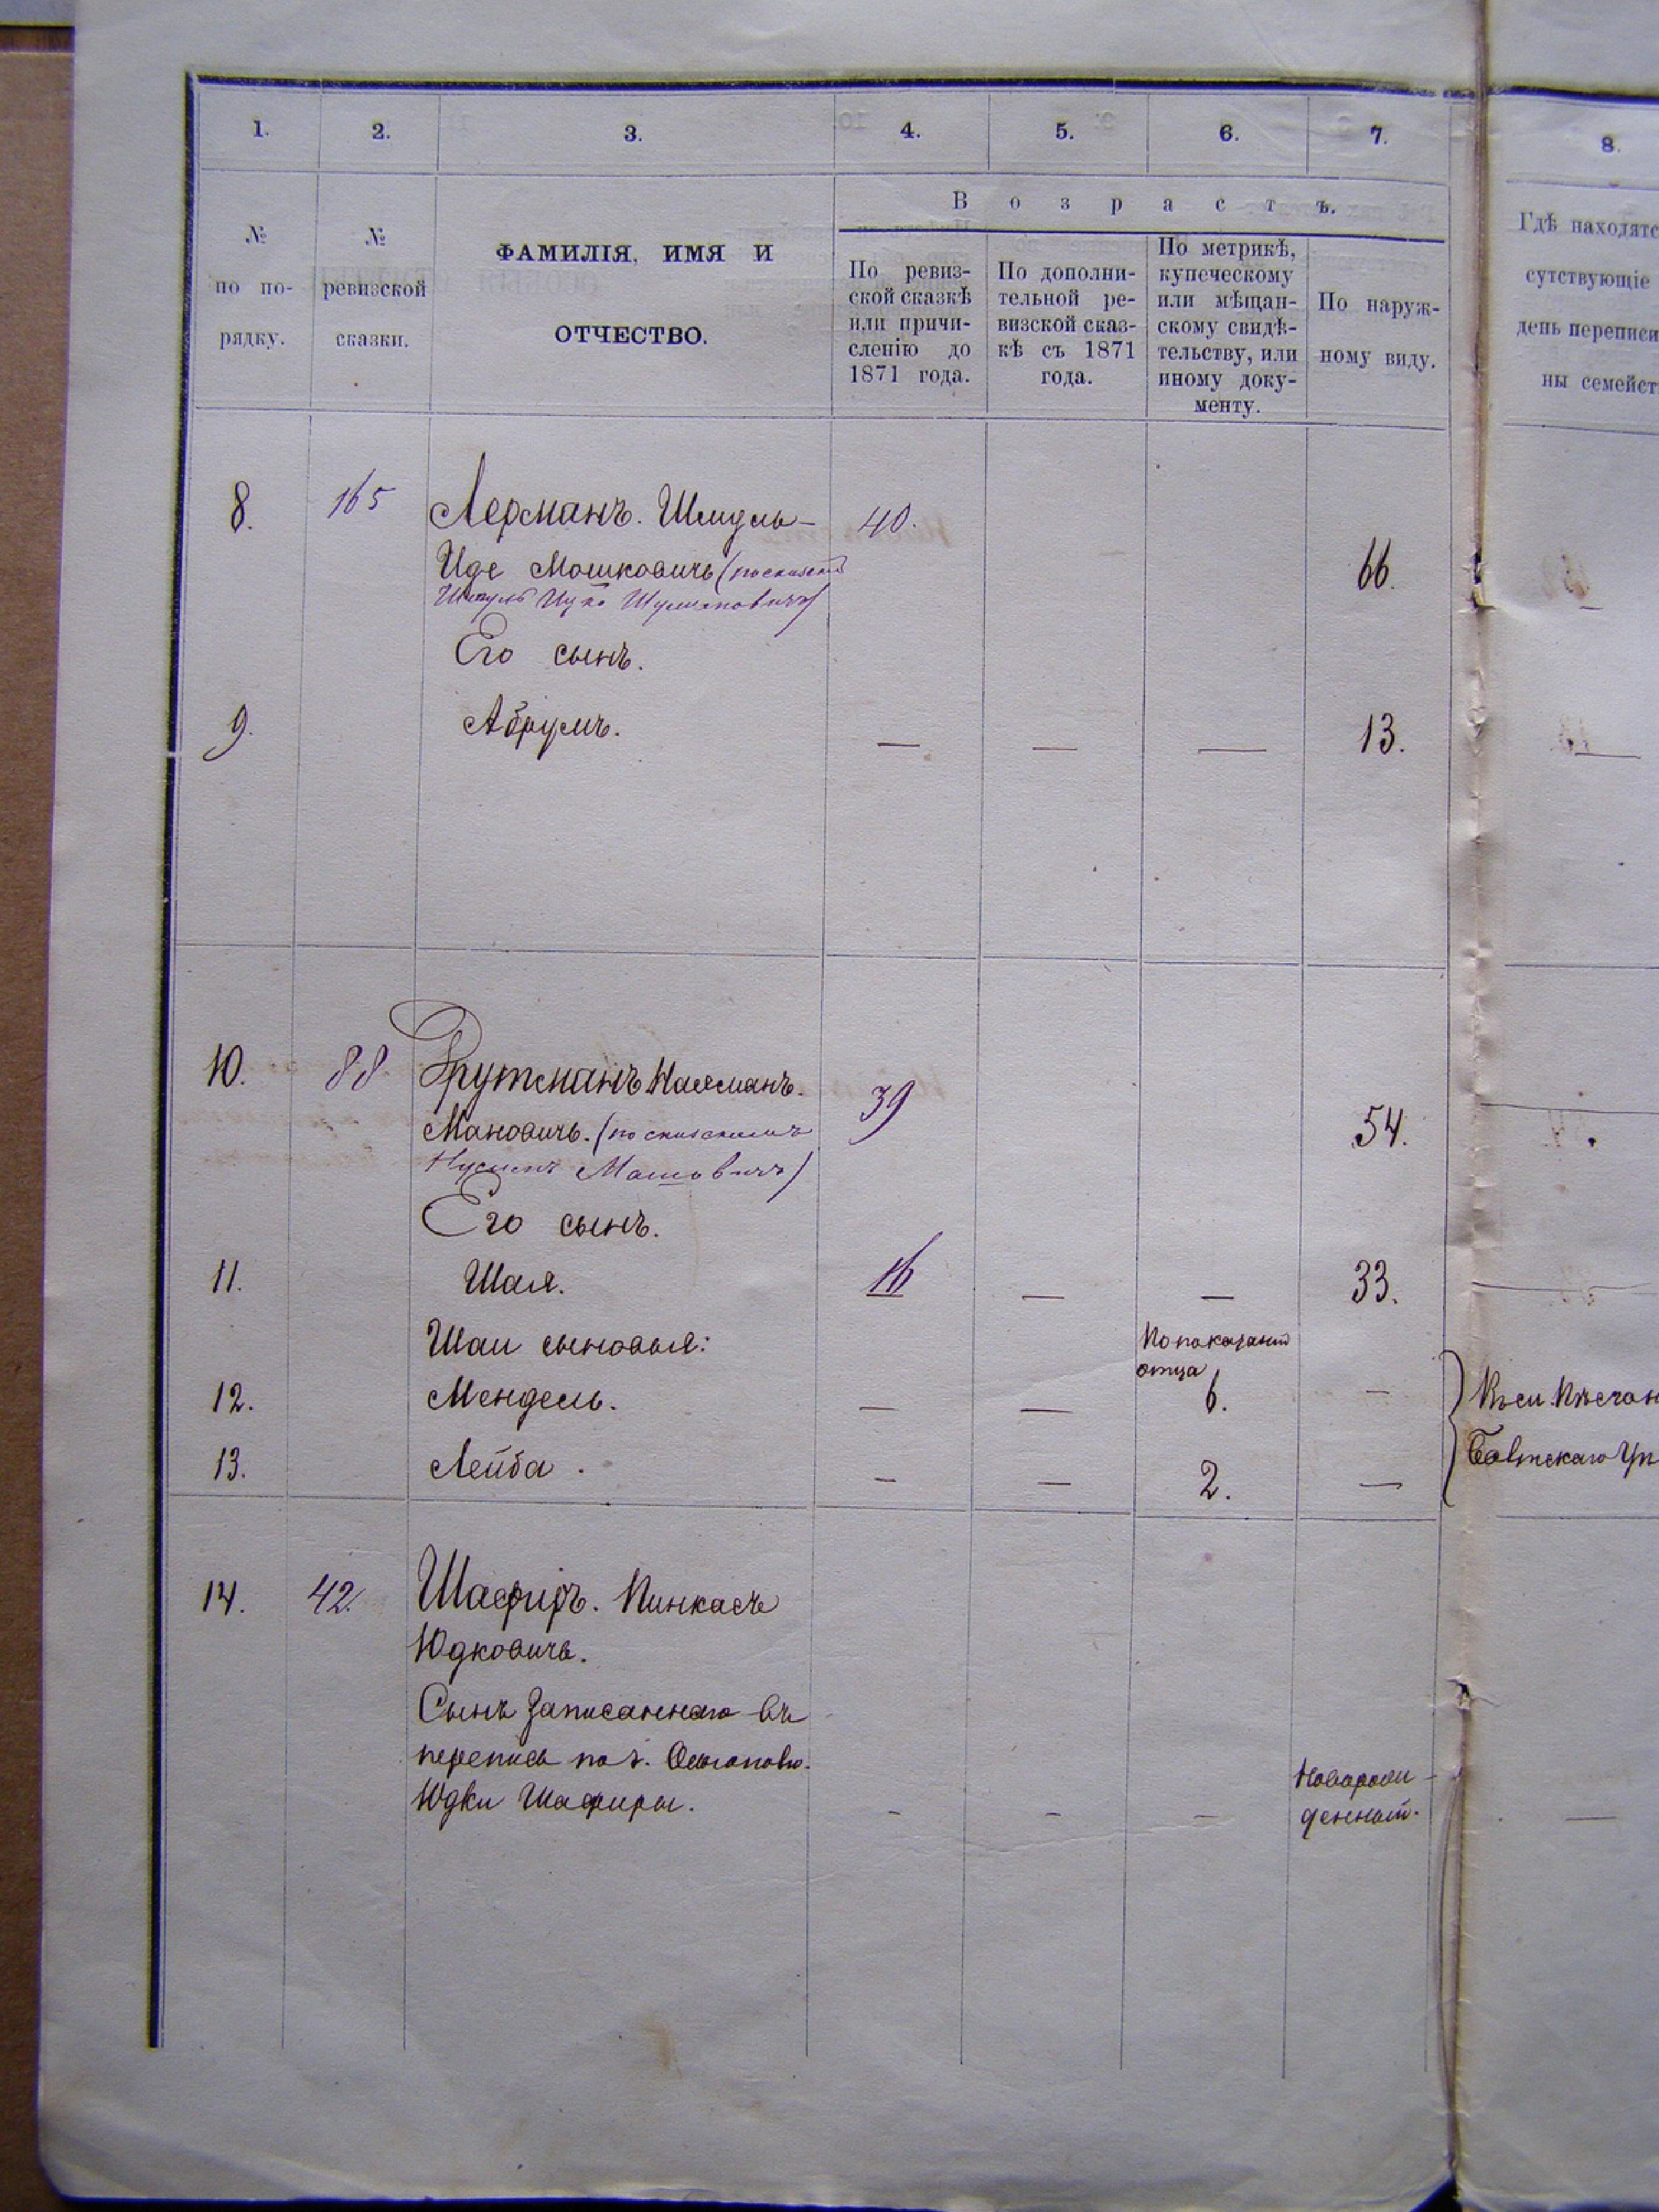 1. 2. 3. 4. 5. 6. 7. 8.
Возрастъ.
№ по по-рядку.
№ ревизской сказки.
ФАМИЛІЯ, ИМЯ И
ОТЧЕСТВО.
По ревиз-
ской сказкѣ
или причи-
сленію до
1871 года.
По дополни-
тельной ре-
визской сказ-
кѣ съ 1871
года.
По метрикѣ,
купеческому
или мѣщан-
скому свидѣ-
тельству, или
иному доку-
менту.
По наруж-
ному виду.
Гдѣ находятс
сутствующіе
день переписи
ны семейст
8. 165 Лерманъ. Шмуль- 40.
Иде Мошковичъ (по 66.
Шмуль Ицко
Его сынъ.
9. Абрумъ. — — — 13.
10. 88 Фрутманъ Нахманъ. 39
Мановичъ. (по 54.
Его сынъ.
11. Шая. 16 — — 33.
Шаи сыновья: По показанію
отца
12. Мендель. — — 6. —
13. Лейба. — — 2. —
Балтскаго
14. 42. Шафиръ. Пинкасъ
Юдковичъ.
Сынъ записаннаго въ
перепись по г. Ольгополю.
Юдки Шафиры. - - - Новорож-
денный. —